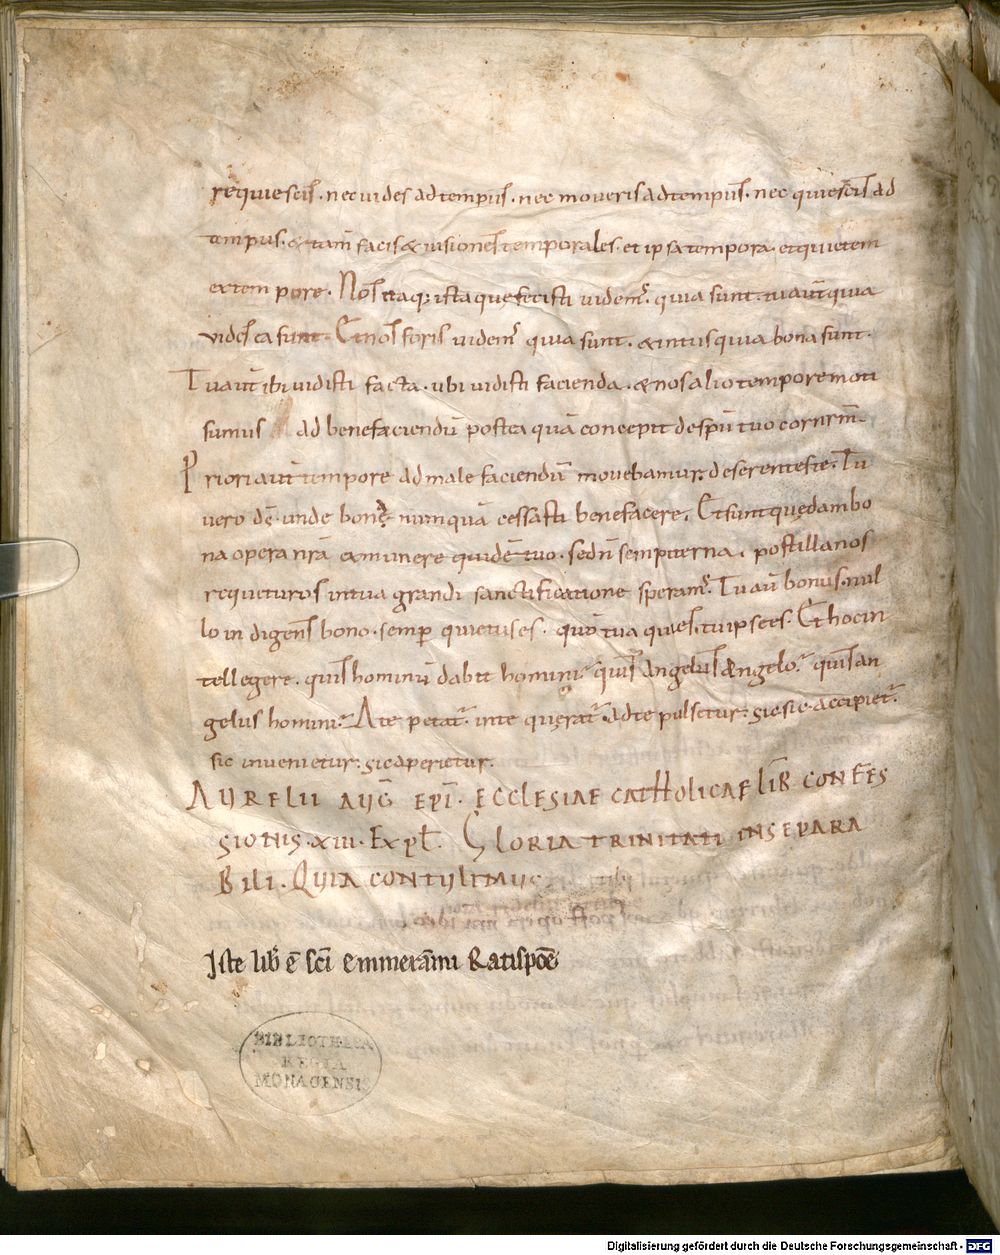 requiescis. nec uides ad tempus. nec moueris ad tempus. nec quiescis ad
tempus. & tam̄ facis & uisiones temporales. et ipsa tempora. et quietem
ex tempore. Nos itaq; ista quę fecisti uidem;. quia sunt. tu aut̄ quia
uides ea sunt. Et nos foris uidem; quia sunt. & intus quia bona sunt.
Tu aut̄ ibi uidisti facta. ubi uidisti facienda. & nos alio tempore moti
sumus ad benefaciendū postea quā concepit de spū tuo cor nr̄m.
Priori aut̄ tempore ad male faciendū mouebamur. deserentes te. Tu
uero dſ̄. unde bonę numquā cessasti benefacere. Et sunt quędam bo
na opera nr̄a ex munere quidē tuo. sed n̄ sempiterna. post illa nos
requieturos in tua grandi sanctificatione speram;. Tu aū bonus. nul
lo indigens bono. semp̄ quietus es. quō tua quies. tu ipse es. Et hoc in
tellegere. quis hominū dabit homini. quis angelus angelo. quis an
gelus homini. A te petat̄. in te quęrat̄. ad te pulsetur. sic sic accipiet̄.
sic inuenietur. sic aperietur.
AURELII AUḠ EPĪ. ECCLESIAE CATHOLICAE LIB̄ CONFES
SIONIS. XIII. EXPL̄. GLORIA TRINITATI INSEPARA
BILI. QUIA CONTULIMUS
post opera
Iste lib̄ ē sc̄i emmerāmi Ratispoē
BIBLIOTHECA
REGIA
MONACENSIS
Digitalisierung gefördert durch die Deutsche Forschungsgemeinschaft - DFG